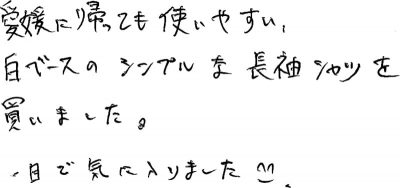 愛媛に帰っても使いやすい、
白ベースのシンプルな長袖シャツを
買いました。
一目で気に入りました